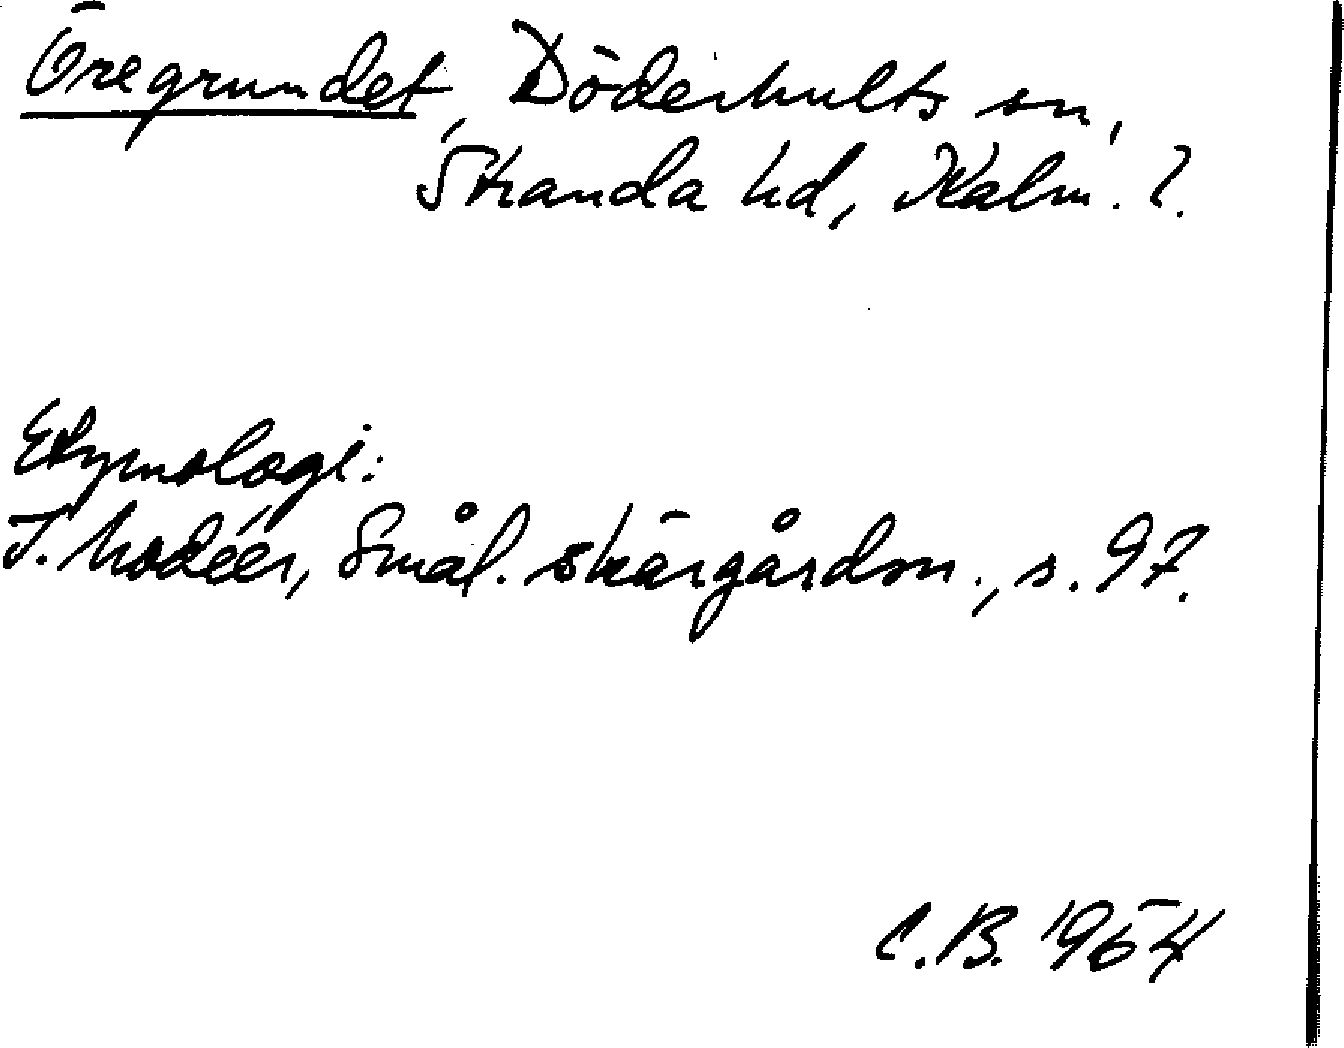 Öregrundet, Döderhults sn,
Stranda hd, Kalm. l.
Etymologi:
I. Modéer, Smål. skärgårdsn., s. 97.
C.B. 1954